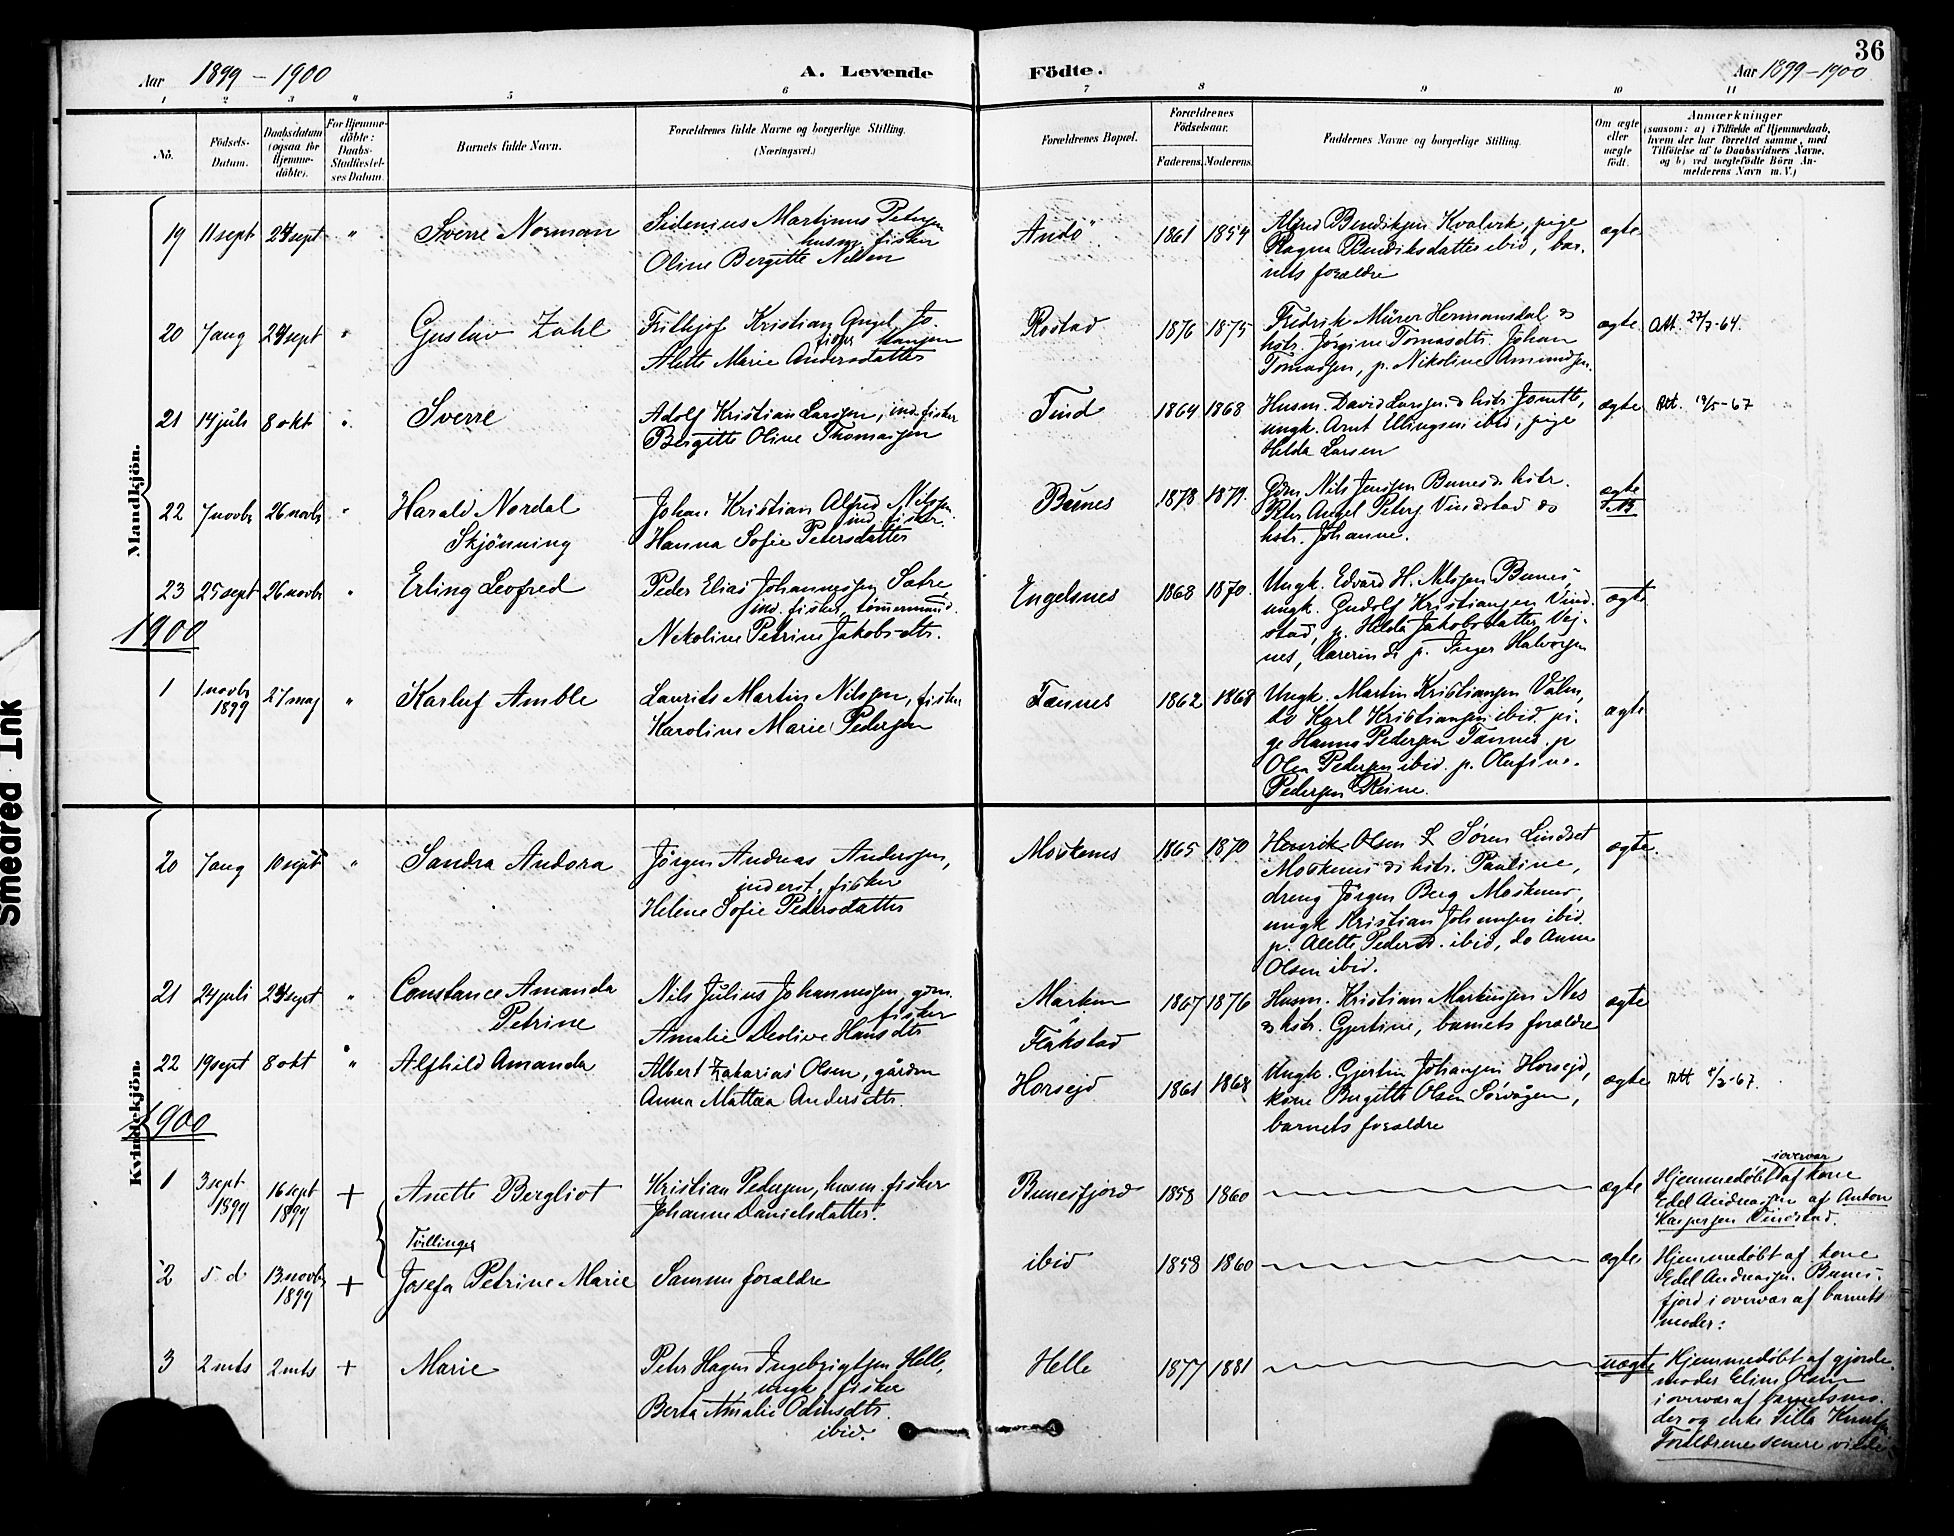 36
Aar 1899-1900
A. Levende
Födte.
Aar 1899-1900
1 2 3 4 5 6 7 8 9 10 11
No.
Födsels-
Datum.
Daabsdatum
(ogsaa for
Hjemme-
döbte).
For Hjemme-
döbte:
Daabs-
Stadfæstel-
ses Datum.
Barnets fulde Navn.
Forældrenes fulde Navne og borgerlige Stilling.
(Næringsvei.)
Forældrenes Bopæl.
Forældrenes
Födselsaar.
Faderens. Moderens.
Faddernes Navne og borgerlige Stilling.
Om ægte
eller
uægte
født.
Anmærkninger
(saasom: a) i Tilfælde af Hjemmedaab,
hvem der har forrettet samme, med
Tilföielse af to Daabsvidners Navne,
og b) ved uægtefödte Börn An-
melderens Navn m. V.)
Mandkjön.
19 11 sept 24 sept " Sverre Norman
Sidenius Martinus Petersen
husm. fisker
Oline Bergitte Nilsen
Andö 1861 1854
Alfred Bendiksen Kvalvik, pige
Ragna Bendiksdatter ibid, bar-
nets forældre
ægte
20 7 aug 24 sept " Gustav Zahl
Frithjof Kristian Angel Jo-
hansen
fisker
Alette Marie Andersdatter
Rostad 1876 1875
Fredrik Mürer Hermansdal &
hstr. Jörgine Tomasdtr. Johan
Tomassen, p. Nikoline Amundsen.
ægte Att. 22/7-64.
21 14 juli 8 okt " Sverre
Adolf Kristian Larssen, ind. fisker
Bergitte Oline Thomassen
Tind 1864 1868
Husm. David Larssen & hstr. Janette,
ungk. Arnt Ellingsen ibid, pige
Helda Larsen
ægte Att. 19/5-67
22 7 novbr 26 novbr " Harald Nordal
Skjönning
Johan Kristian Alfred Nilssen
ind. fisker.
Hanna Sofie Petersdatter
Bunes 1878 1879.
Gdm Nils Jenssen Bunes & hstr.
Ptr. Angel Peters Vindstad &
hstr. Johanne.
ægte
23 25 sept 26 novbr " Erling Leofred
Peder Elias Johannessen Sætre
ind. fisker, tömmermand.
Nekoline Petrine Jakobsdtr.
Engelsnes 1868 1870.
Ungk. Edvard H. Nilssen Bunes,
ungk. Gudolf Kristiansen Vind-
stad, p. Helda Jakobsdatter Vej-
nes, lærerinde p. Inger Halvorsen
ægte
1900
1 1 novbr
1899
27 maj " Karluf Amble
Laurits Martin Nilssen, fisker
Karoline Marie Pedersen
Tennes 1862 1868
Ungk. Martin Kristiansen Valen,
do Karl Kristiansen ibid. pi-
ge Hanna Pedersen Tennes. p
Olea Pedersen ibid. p. Olufine
Pedersen Reine.
ægte
Kvindekjön.
20 7 aug 10 sept " Sandra Andora
Jörgen Andreas Andersen,
inderst, fisker
Helene Sofie Pedersdatter
Moskenes 1865 1870
Henrik Olsen L Sören Lindset
Moskenes & hstr. Pauline,
dreng Jörgen Berg Moskenes,
ungk Kristian Johansen ibid.
p. Alette Pedersd. ibid, do Anna
Olsen ibid.
ægte.
21 24 juli 24 sept " Constance Amanda
Petrine
Nils Julius Johannessen, gdm.
fisker
Amalie Deolive Hansdtr
Marken
Flakstad
1867 1876
Husm. Kristian Markussen Nes
& hstr. Gjertine, barnets forældre
ægte
22 19 sept 8 okt " Alfhild Amanda
Albert Zakarias Olsen, gårdm
Anna Mattea Andersdtr.
Horsejd 1861 1868
Ungk. Gjertin Johansen Horsejd,
kone Bergitte Olsen Sörvågen,
barnets forældre
ægte Att 8/2-67.
1900
1 3 sept
1899
16 sept
1899
+ Anette Bergliot
Kristian Pedersen, husm. fisker
Johanne Danielsdatter.
Bunesfjord 1858 1860
ægte
iovervær
Hjemmedöbt af kone
Edel Andreassen af Anton
Kaspersen Vindstad.
Tvillinger
2 5. d 13 novbr
1899
+ Josefa Petrine Marie Samme forældre
ibid 1858 1860
ægte
Hjemmedöbt af kone
Edel Andreassen. Bunes-
fjord i overvær af barnets
moder.
3 2 mts 2 mts + Marie
Petter Hagen Ingebrigtsen Helle,
ungk. fisker
Berta Amalie Odinsdtr.
ibid.
Helle 1877 1881
uægte
Hjemmedöbt af gjorde-
moder Eline Olsen
i overvær af barnets mo-
der og enke Silla Knuts
Forældrene senere viede
Smeared Ink